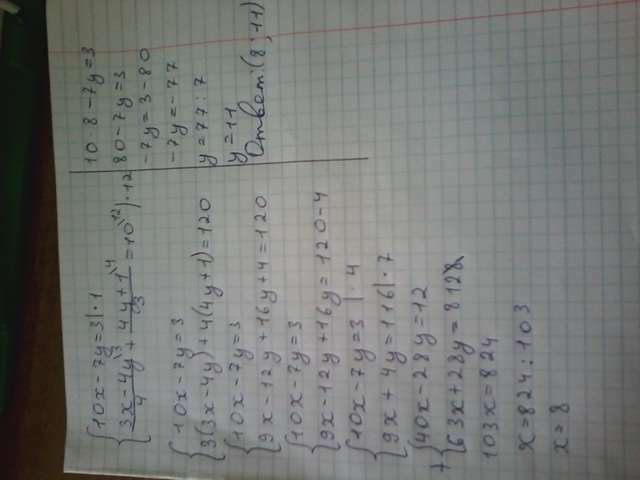 {10x-7y=3|·1
{3x-4y/4 \3 + 4y+1/3 \4 =10\12)·12
{10x-7y=3
{3(3x-4y)+4(4y+1)=120
{10x-7y=3
{9x-12y+16y+4=120
{10x-7y=3
{9x-12y+16y=120-4
{10x-7y=3|·4
{9x+4y=116|·7
+{40x-28y=12
{63x+28y=812
103x=824
x=824:103
x=8
10·8-7y=3
80-7y=3
-7y=3-80
-7y=-77
y=77:7
y=11
Ответ:(8;11)